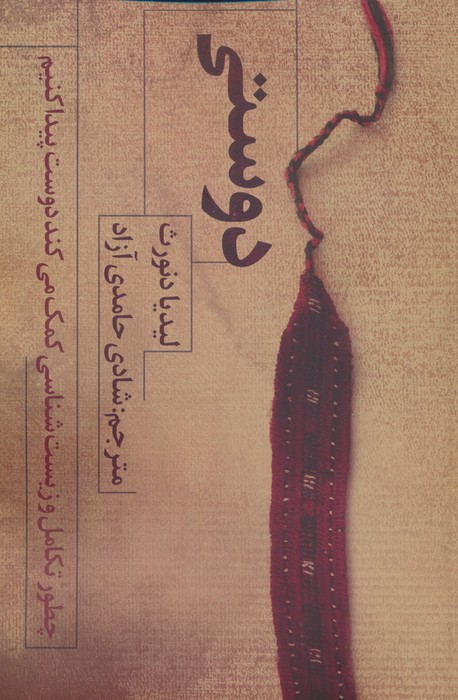 دوستی
لیدیا دنورث
مترجم: شادی حامدی آزاد
چطور تکامل و زیست‌شناسی کمک می‌کند دوست پیدا کنیم